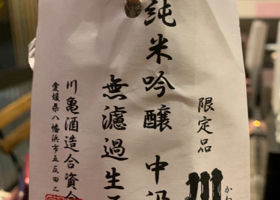 限定品
川
かわ
純米吟醸 中汲
無濾過生
川亀酒造合資会
愛媛県八幡浜市五反田二